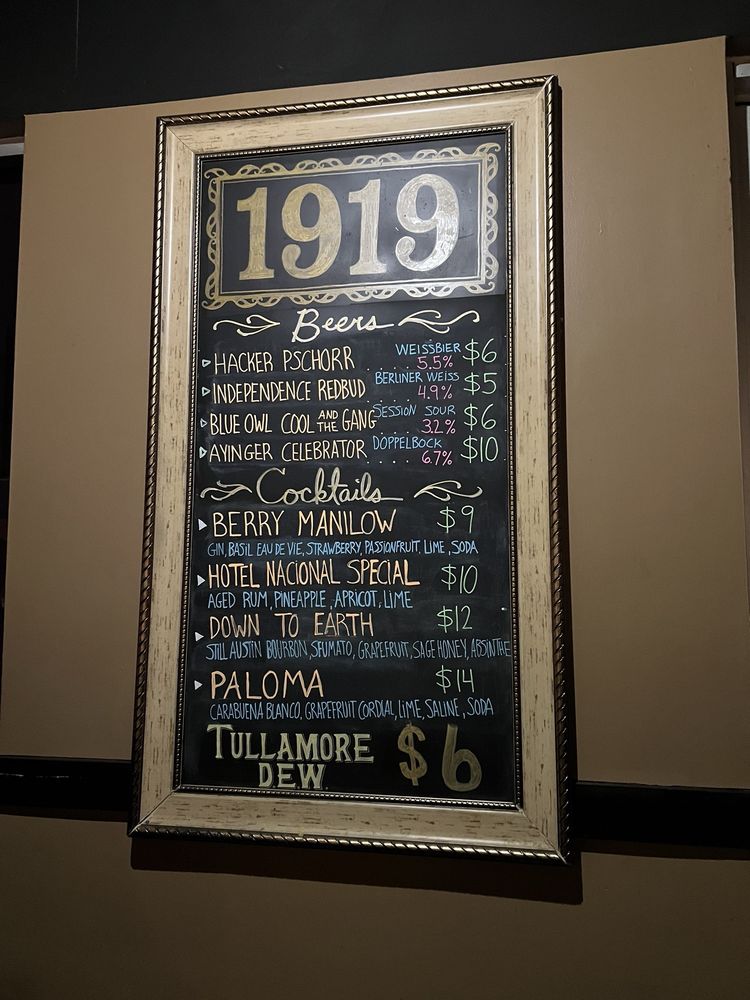 1919
Beers
HACKER PSCHORR .... WEISSBIER 5.5% $6
INDEPENDENCE REDBUD .. BERLINER WEISS 4.9% $5
BLUE OWL COOL AND THE GANG ... SESSION SOUR 3.2% $6
AYINGER CELEBRATOR .... DOPPELBOCK 6.7% $10
Cocktails
BERRY MANILOW $9
GIN, BASIL EAU DE VIE, STRAWBERRY, PASSIONFRUIT, LIME, SODA
HOTEL NACIONAL SPECIAL $10
AGED RUM, PINEAPPLE, APRICOT, LIME
DOWN TO EARTH $12
STILL AUSTIN BOURBON, SFUMATO, GRAPEFRUIT, SAGE HONEY, ABSINTHE
PALOMA $14
CARABUENA BLANCO, GRAPEFRUIT CORDIAL, LIME, SALINE, SODA
TULLAMORE $6
D.E.W.